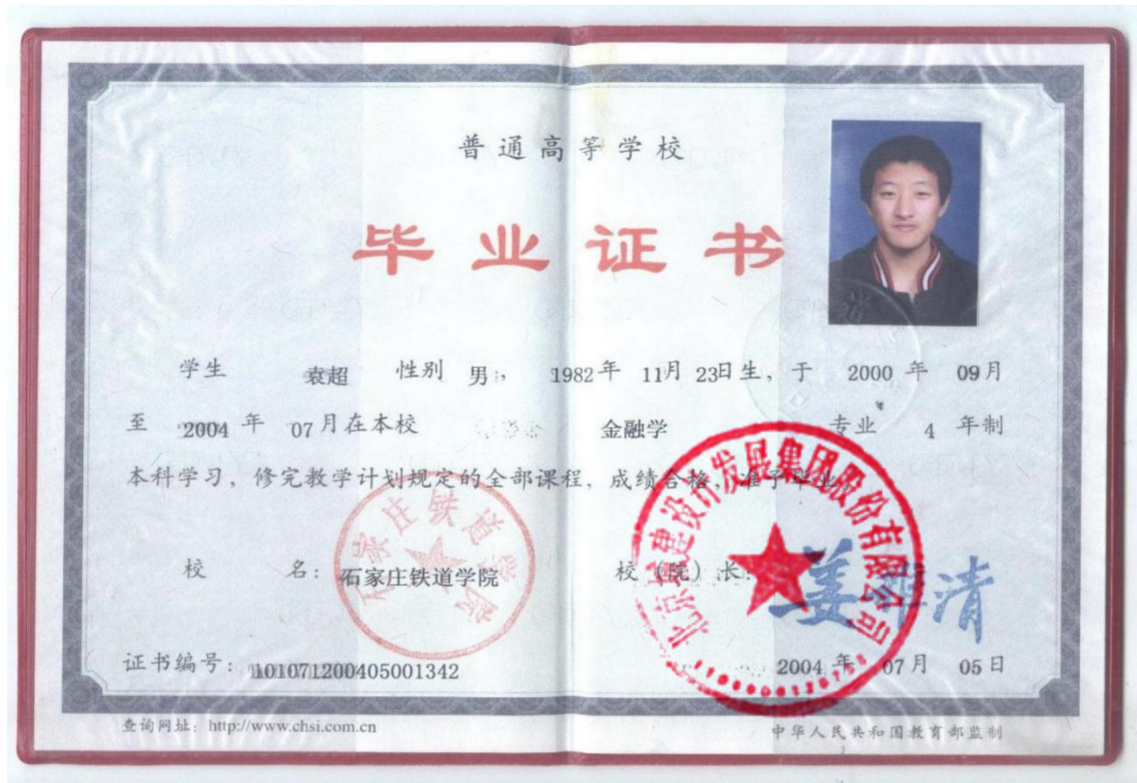 普通高等学校
毕业证书
学生 袁超 性别 男， 1982年 11月 23日生，于 2000 年 09月
至 2004 年 07月在本校 金融学 专业 4 年制
本科学习，修完教学计划规定的全部课程，成绩合格，准予毕业。
校 名：石家庄铁道学院
校（院）长：
石家庄铁道学院
北京城建设计发展集团股份有限公司
证书编号：101071200405001342
2004 年 07月 05日
查询网址：http://www.chsi.com.cn
中华人民共和国教育部监制